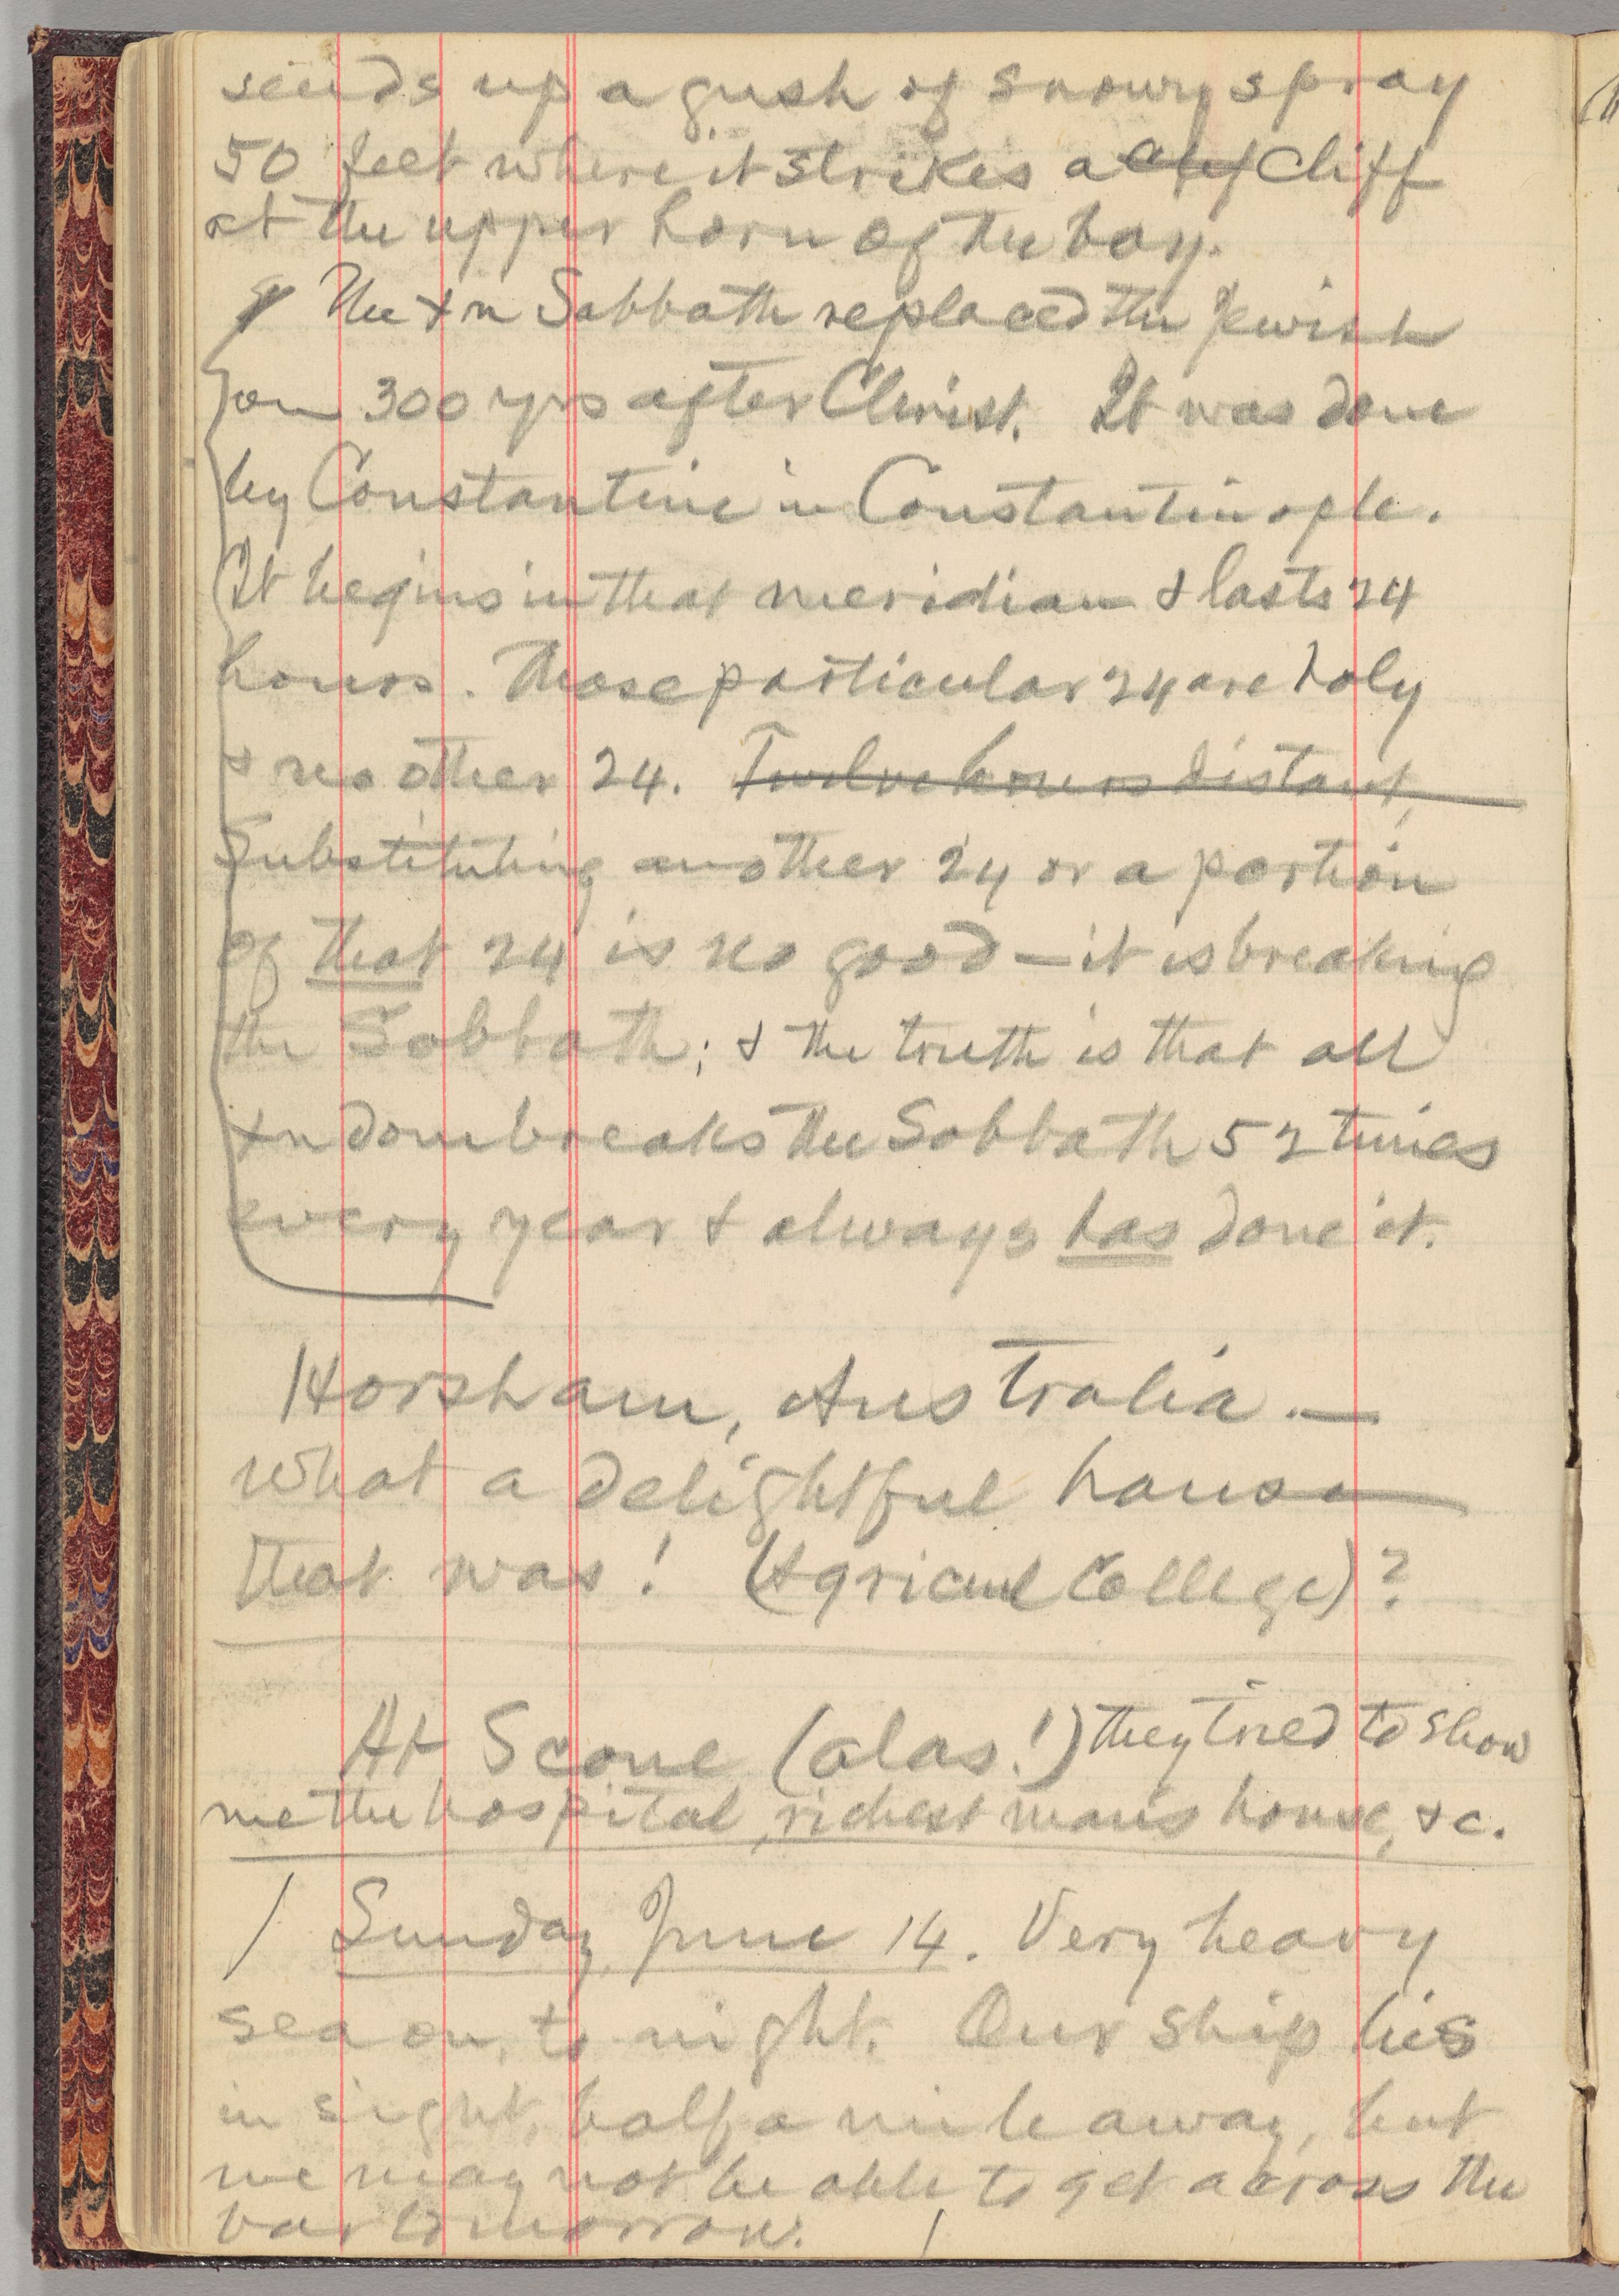 sends up a gush of snowy spray
50 feet where it strikes a cliff
at the upper horn of the bay.
The Xn Sabbath replaced the Jewish
on 300 yrs after Christ. It was done
by Constantine in Constantinople.
It begins in that meridian & lasts 24
hours. Those particular 24 are holy
& no other 24. Twelve hours distant,
Substituting another 24 or a portion
of that 24 is no good — it is breaking
the Sabbath; & the truth is that all
Xndom breaks the Sabbath 52 times
every year & always has done it.
Horsham, Australia. —
What a delightful house
that was! (Agricul College)?
At Scone (alas!) they tried to show
me the hospital, richest man's house, &c.
/ Sunday, June 14. Very heavy
sea on, to night. Our ship lies
in sight, half a mile away, but
we may not be able to get across the
bar tomorrow. /